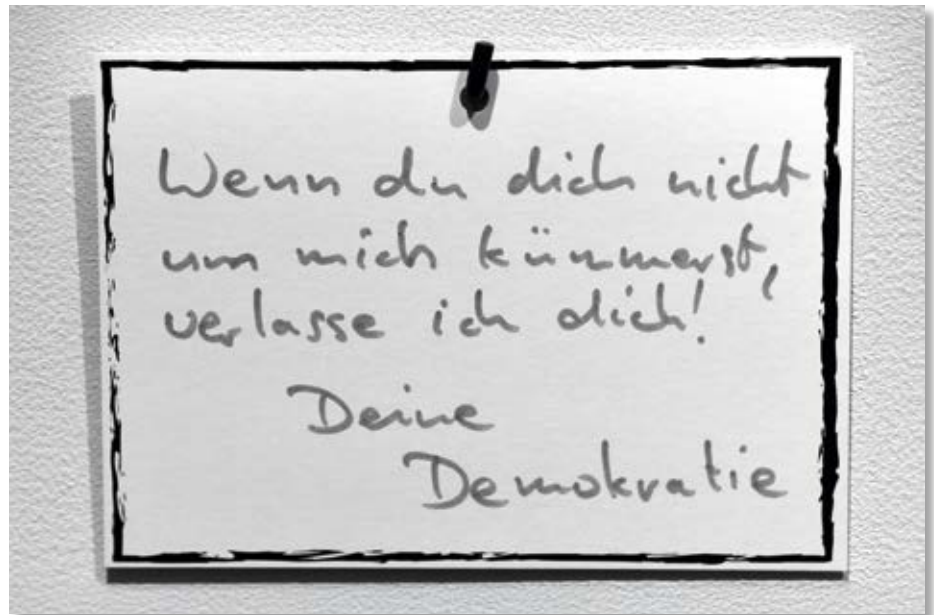 Wenn du dich nicht
um mich kümmerst,
verlasse ich dich!
Deine
Demokratie